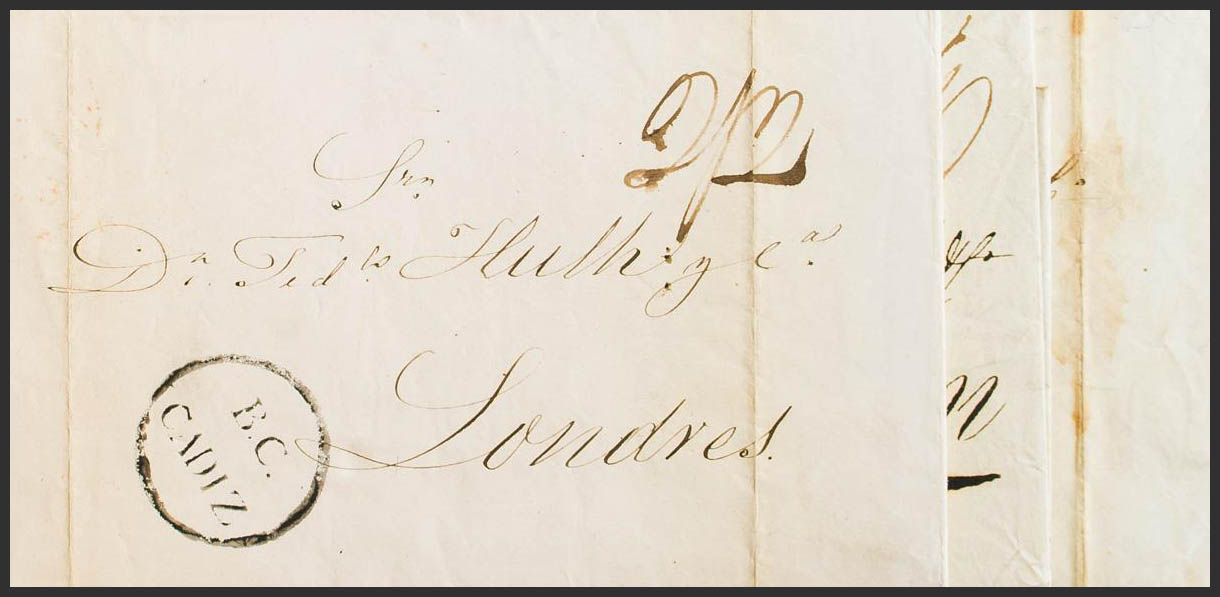 2/2
Srn
Dn. Fedco. Huth y Ca.
Londres.
B.C.
CADIZ